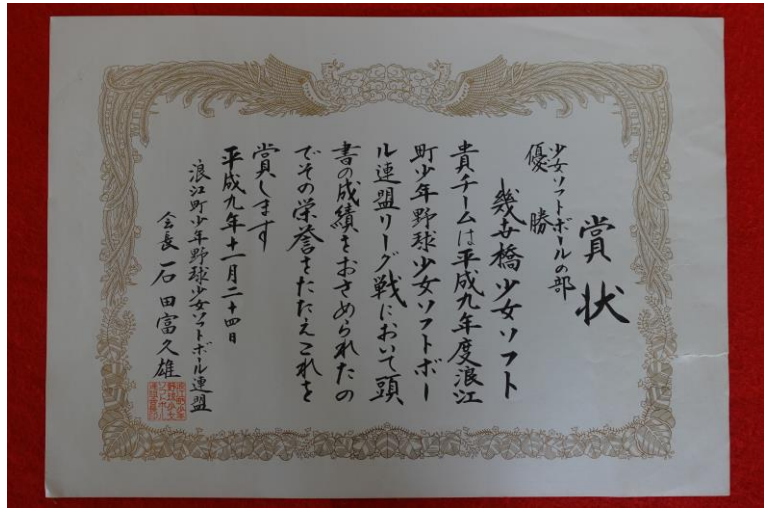 賞状
少女ソフトボールの部
優勝
幾世橋少女ソフト
貴チームは平成九年度浪江
町少年野球少女ソフトボー
ル連盟リーグ戦において頭
書の成績をおさめられたの
でその栄誉をたたえこれを
賞します
平成九年十一月二十四日
浪江町少年野球少女ソフトボール連盟
会長 石田富久雄